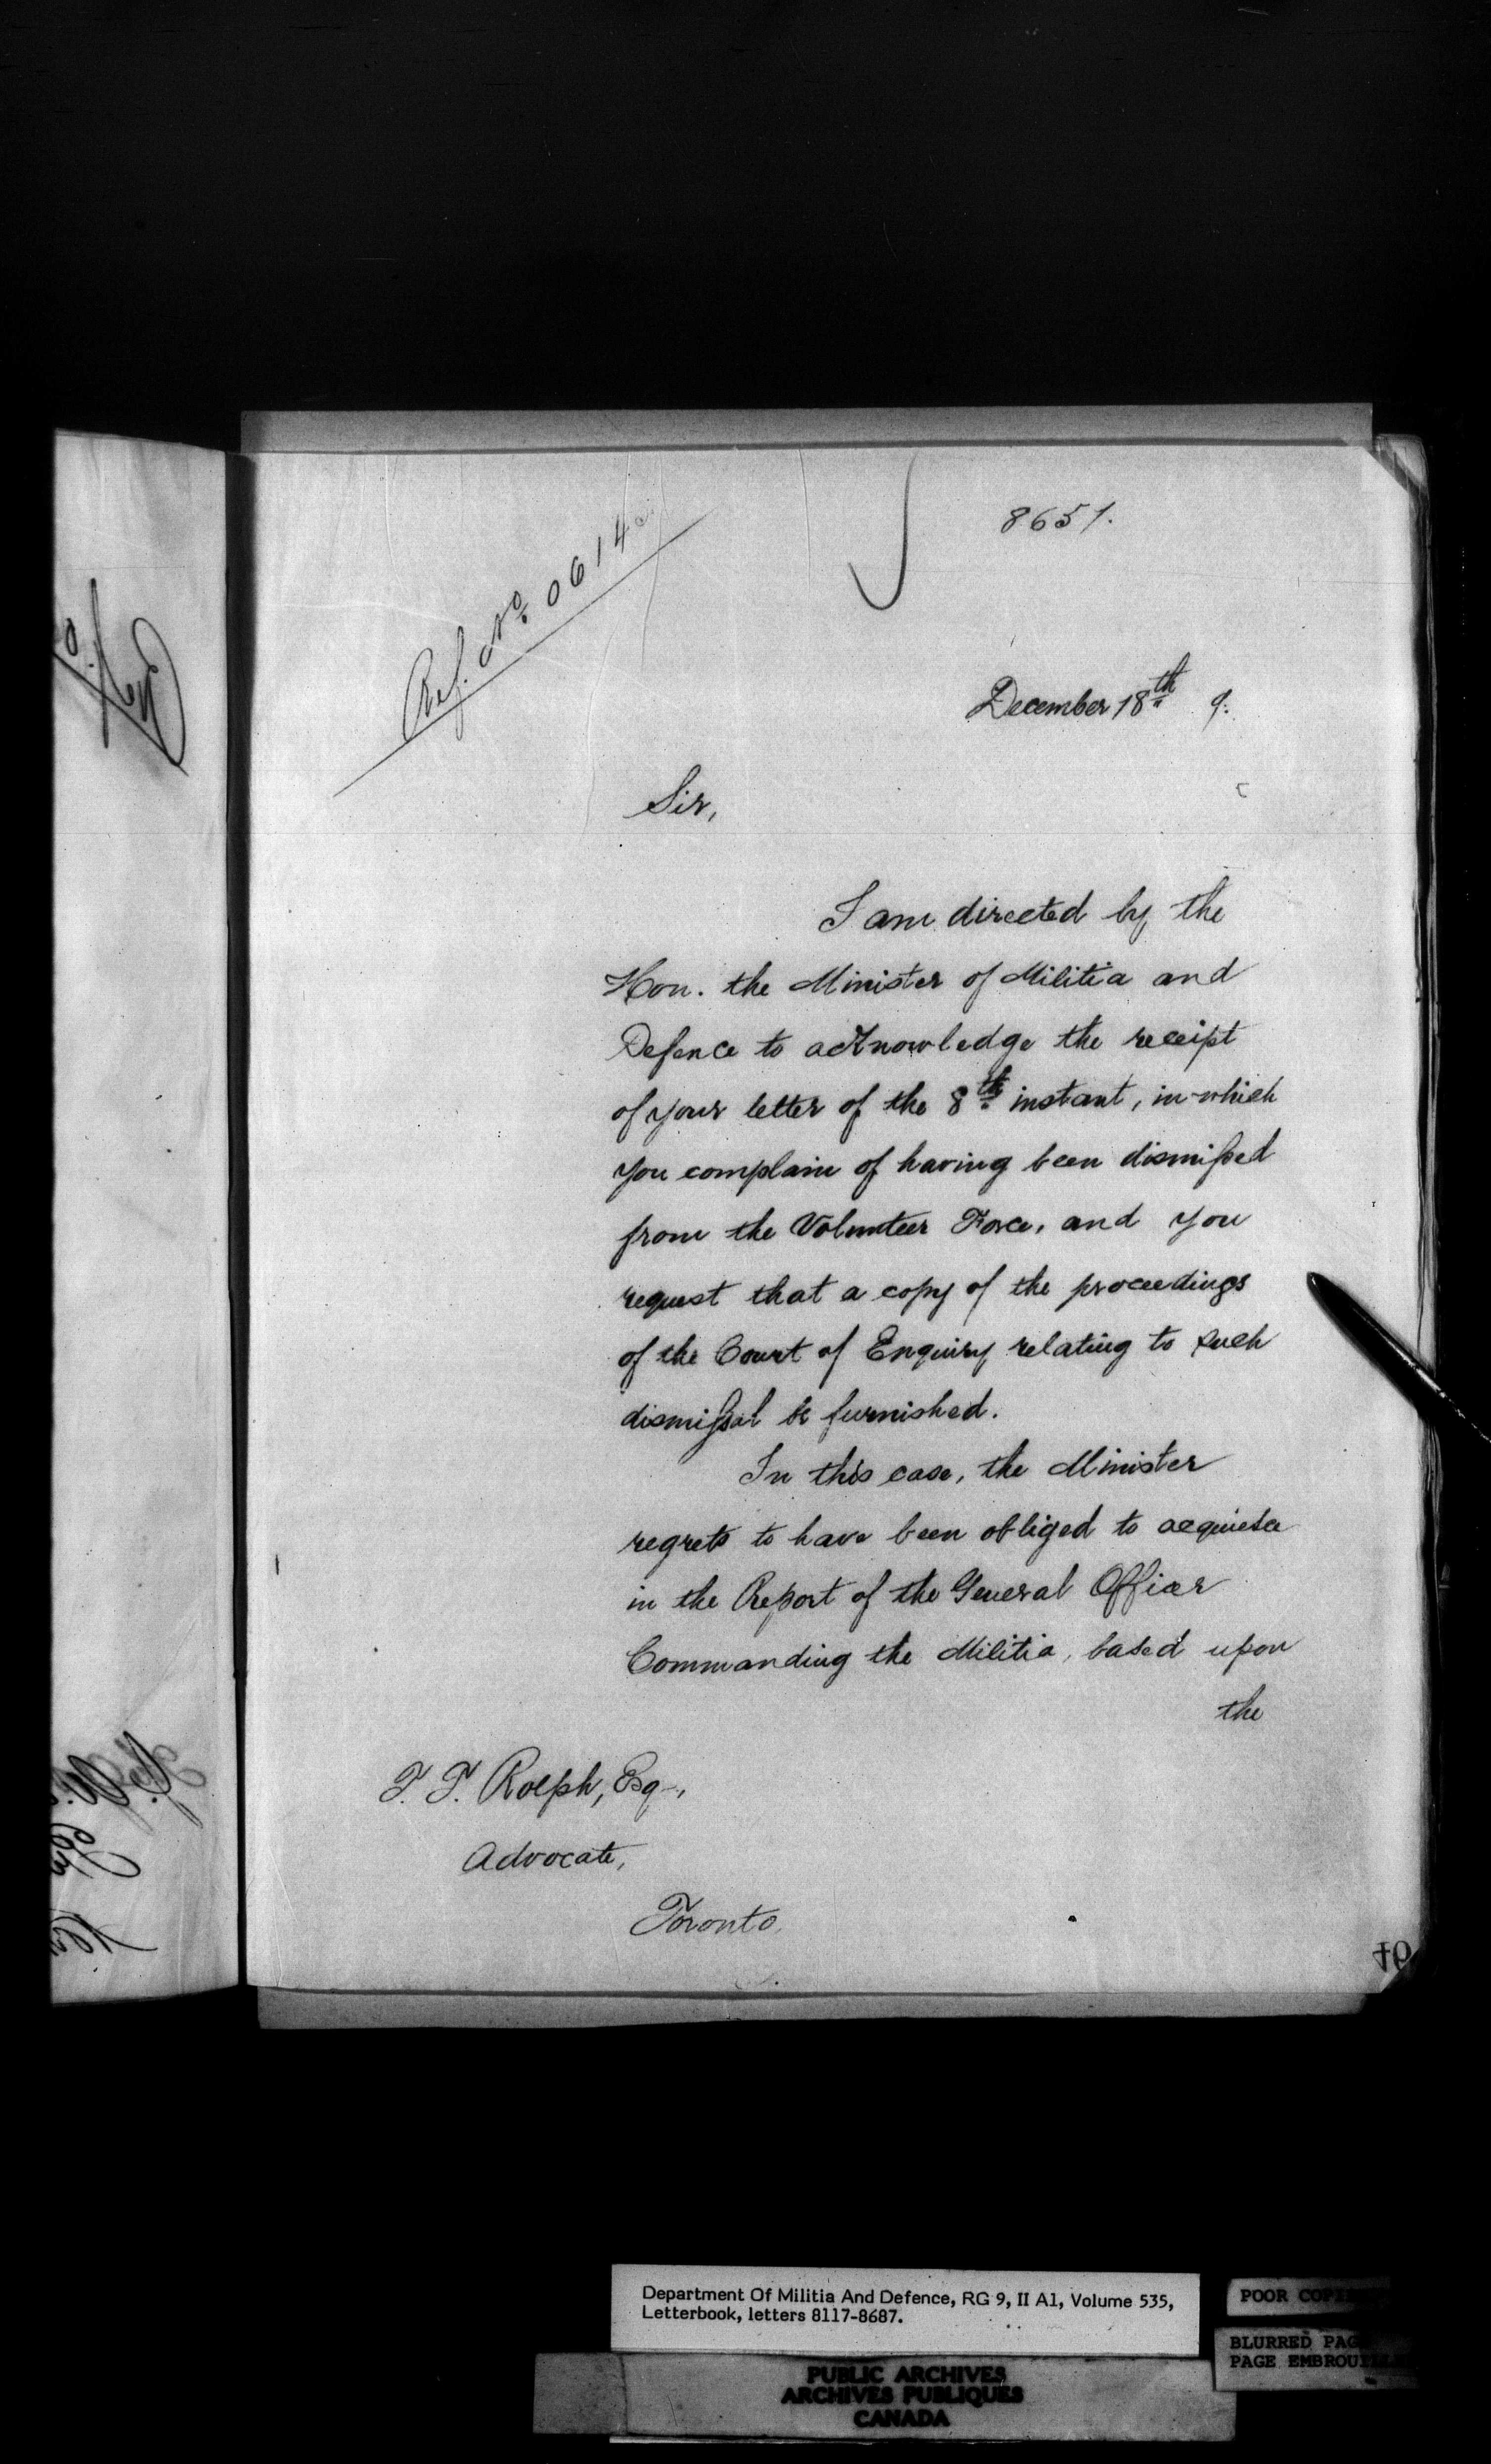 8651.
Ref. No. 0614
December 18th 9.
Sir,
I am directed by the
Hon. the Minister of Militia and
Defence to acknowledge the receipt
of your letter of the 8th instant, in which
you complain of having been dismissed
from the Volunteer Force, and you
request that a copy of the proceedings
of the Court of Enquiry relating to such
dismissal be furnished.
In this case, the Minister
regrets to have been obliged to acquiesce
in the Report of the General Officer
Commanding the Militia, based upon
the
T. T. Rolph, Esq.,
Advocate,
Toronto.
Department Of Militia And Defence, RG 9, II A1, Volume 535,
Letterbook, letters 8117-8687.
POOR COPY
BLURRED PAG
PAGE EMBROUI
PUBLIC ARCHIVES
ARCHIVES PUBLIQUES
CANADA